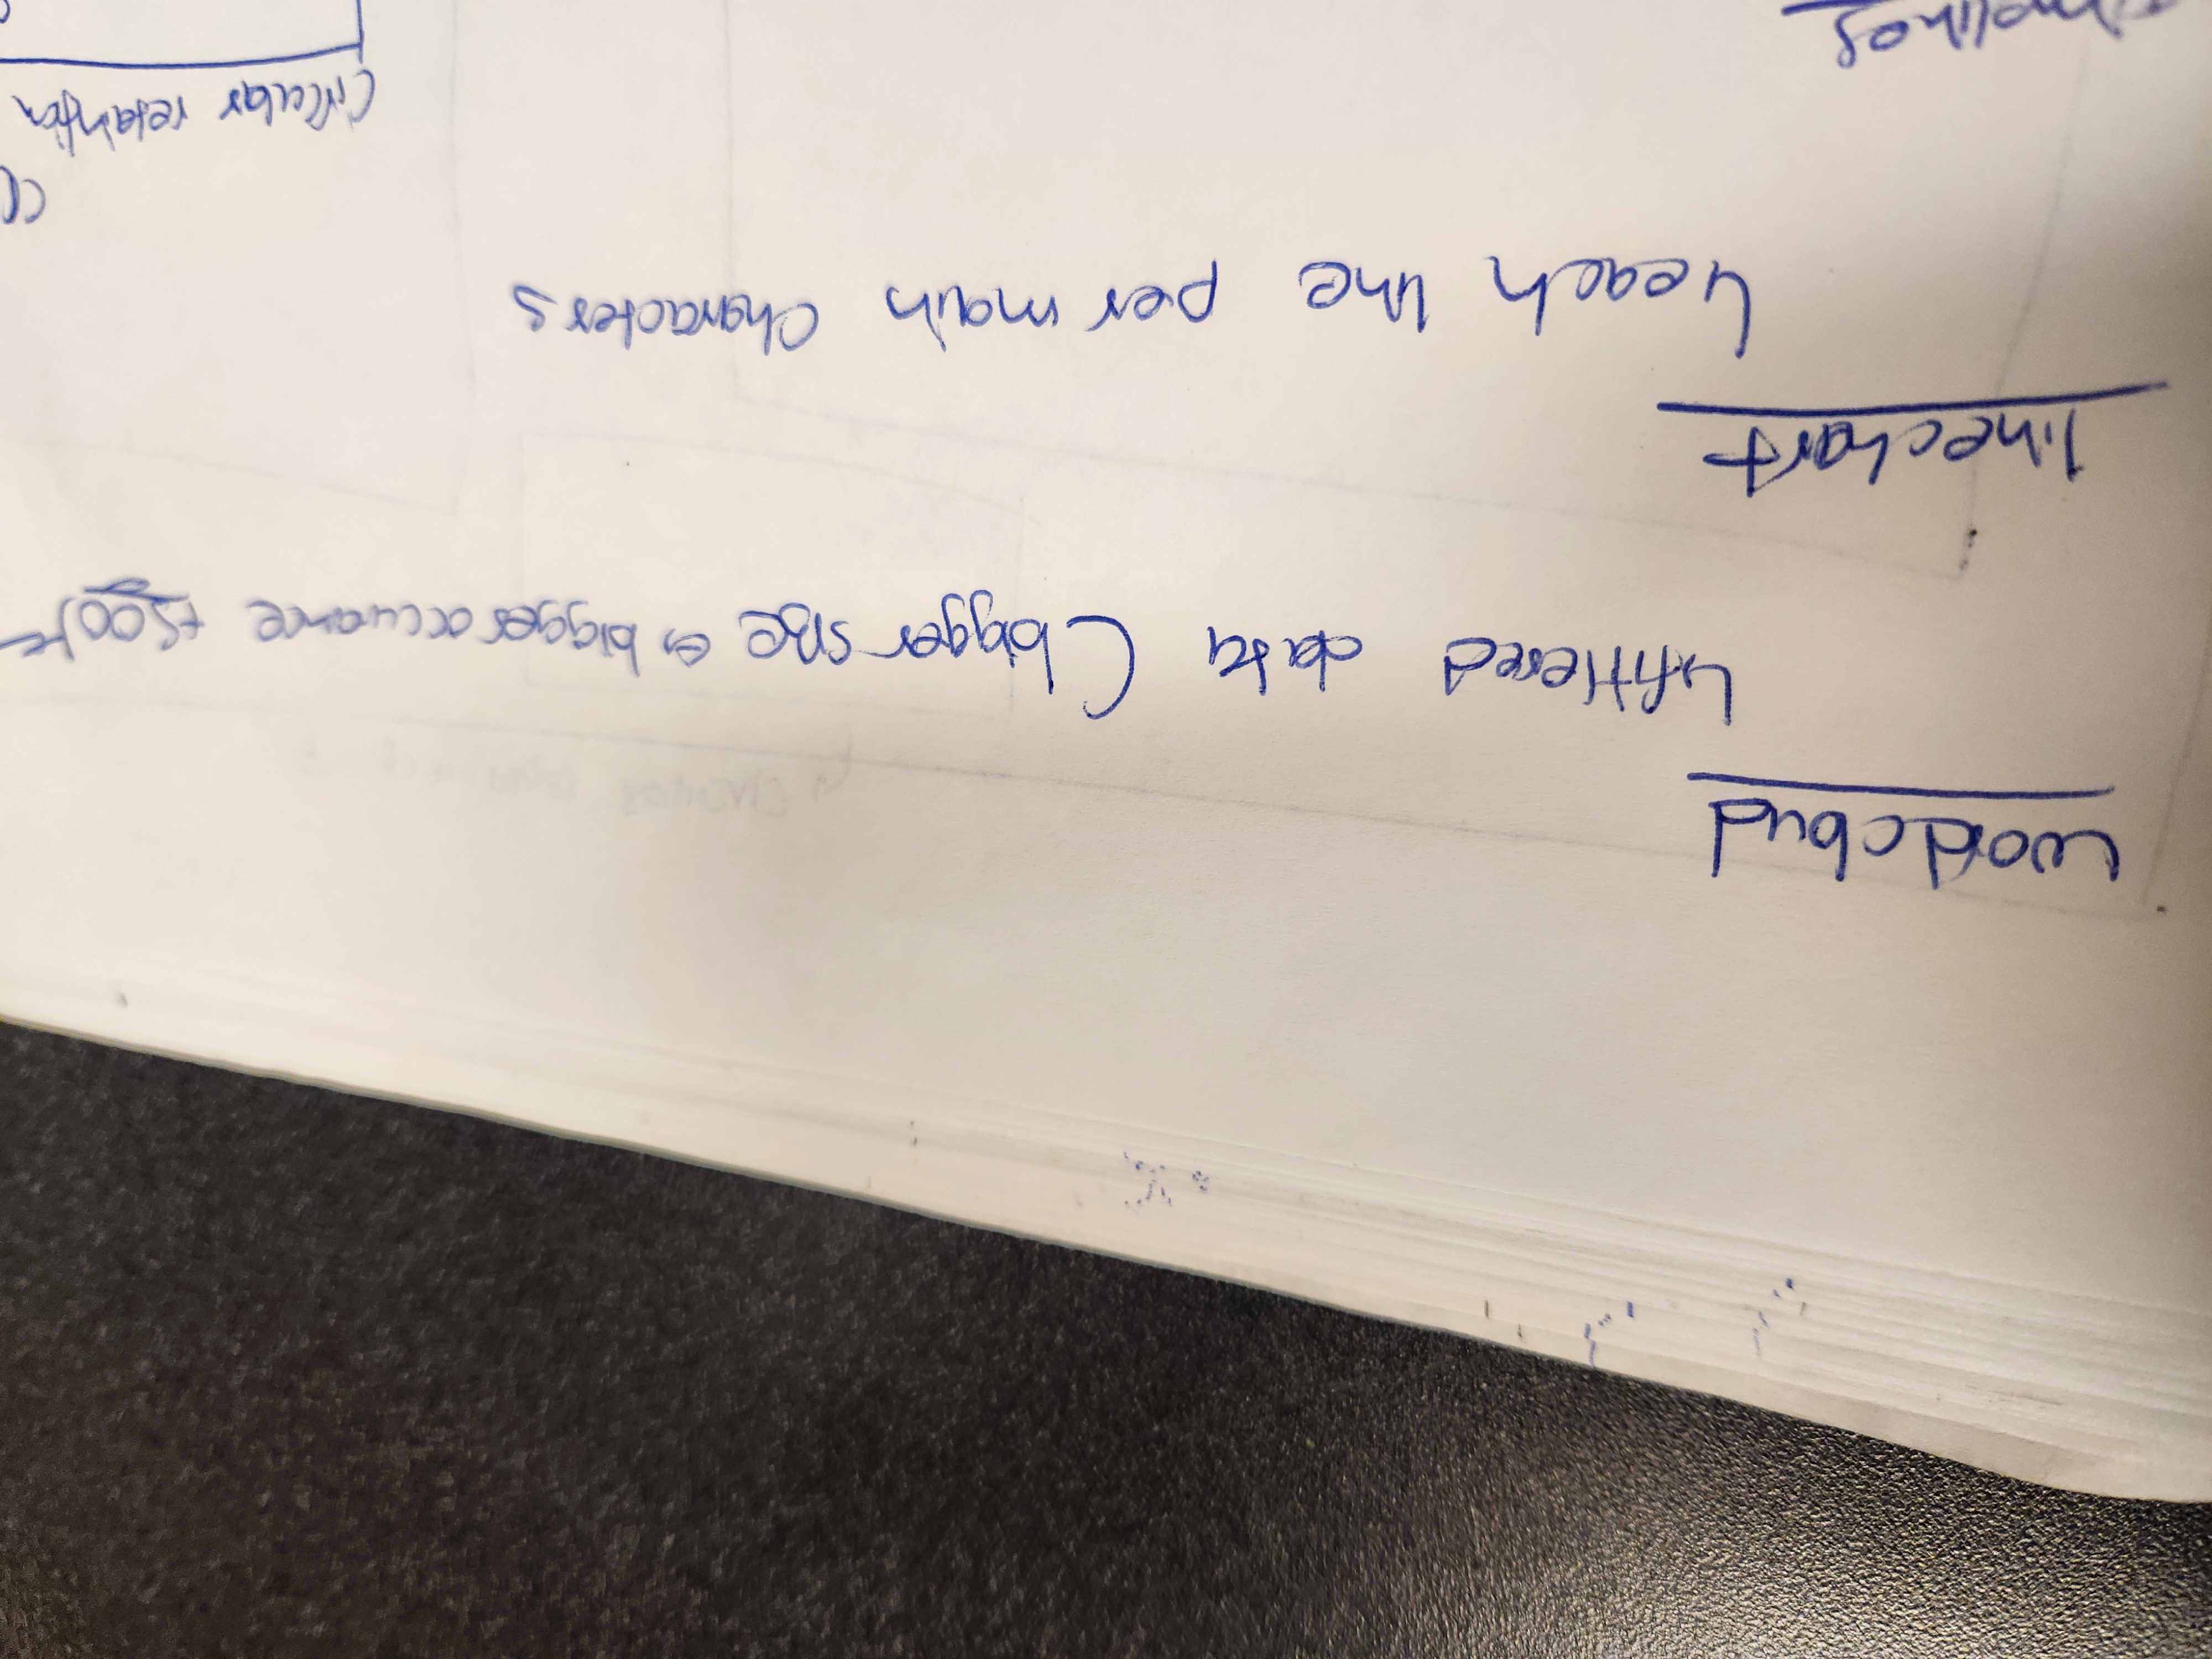 wordcloud
↳ filtered data ( bigger size ⇔ bigger occurance
linechart
↳ each line per main characters
Circular relation
timelines